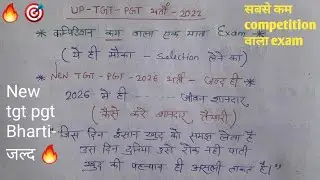 UP-TGT-PGT भर्ती - 2022
सबसे कम
competition
वाला exam
* कम्पिटिशन कम वाला एक मात्र Exam *
( ये ही मौका - Selection लेने का )
* NEW TGT - PGT - 2026 भर्ती - जल्द ही
2026 में ही ---- जीवन शानदार
( कैसे करें शानदार तैयारी )
New
tgt pgt
Bharti
जल्द
"जिस दिन इंसान खुद को समझ लेता है
उस दिन दुनिया उसे रोक नहीं पाती
खुद की पहचान ही असली ताकत है।"